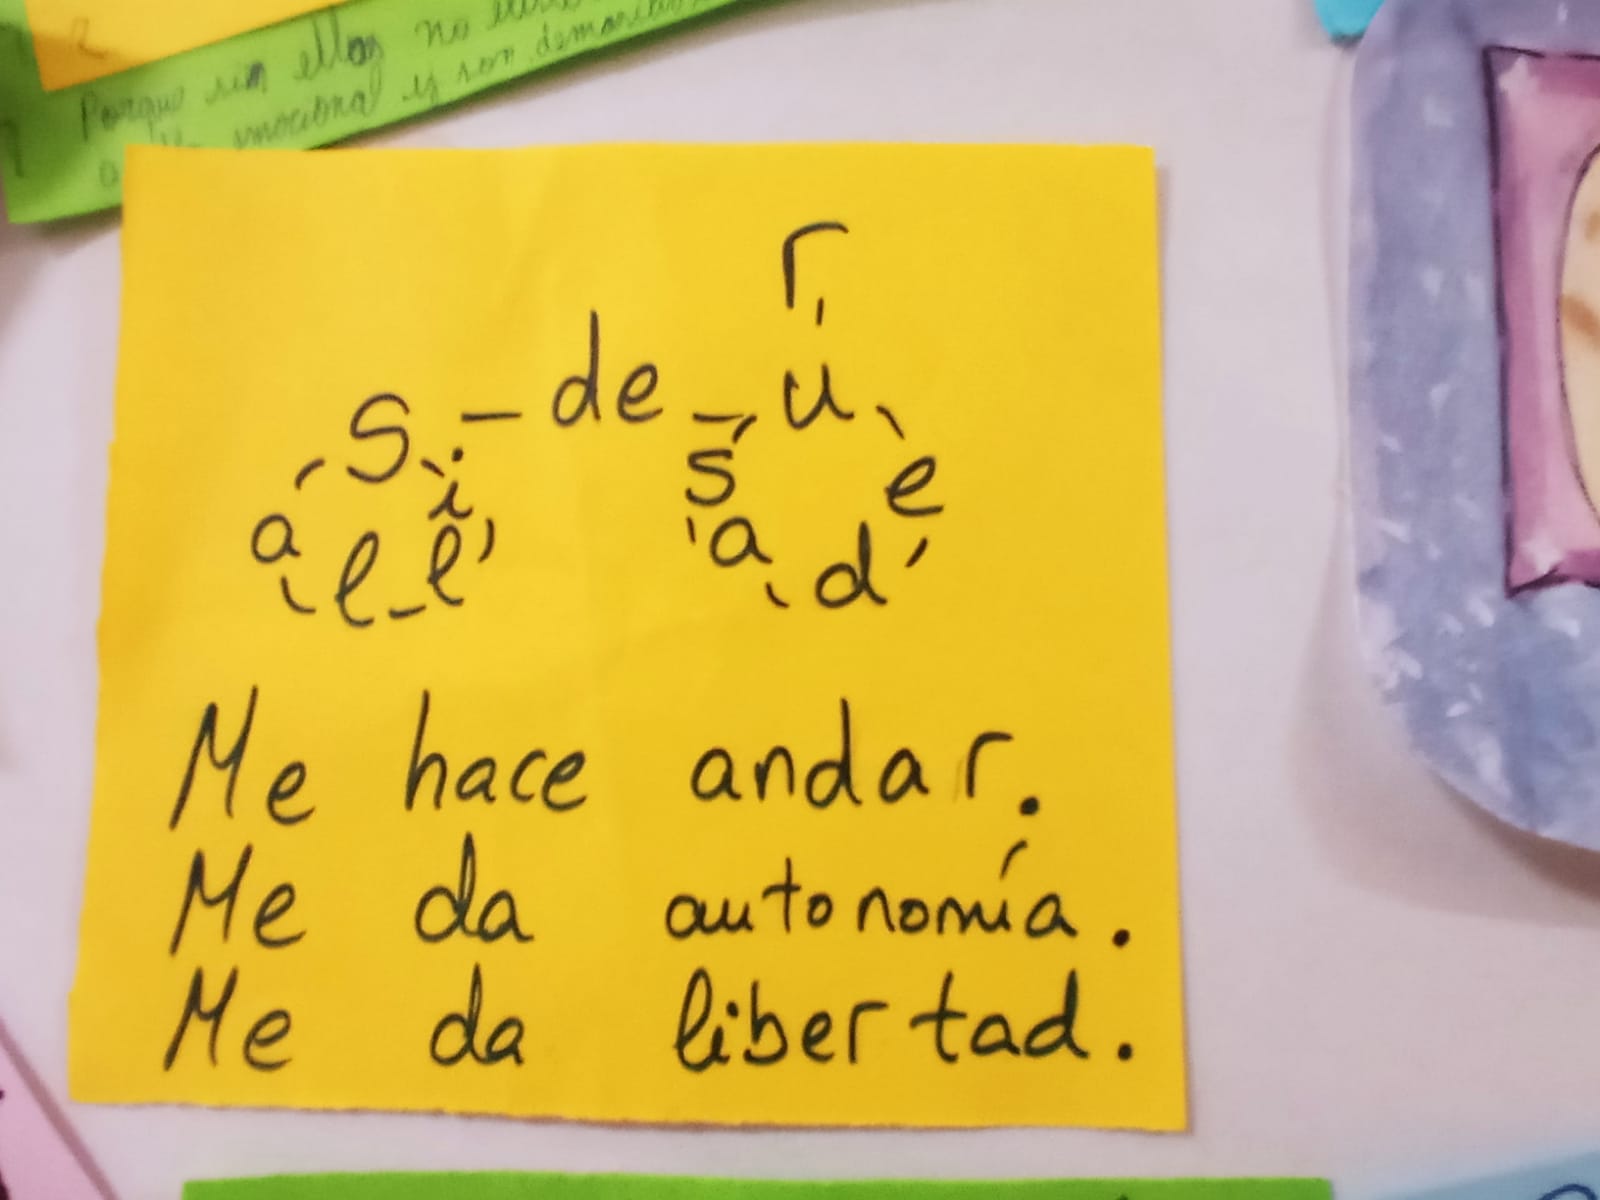 Porque sin ellos no
emocional y son
S-i-l-l-a-de-r-u-e-d-a-s
Me hace andar.
Me da autonomía.
Me da libertad.